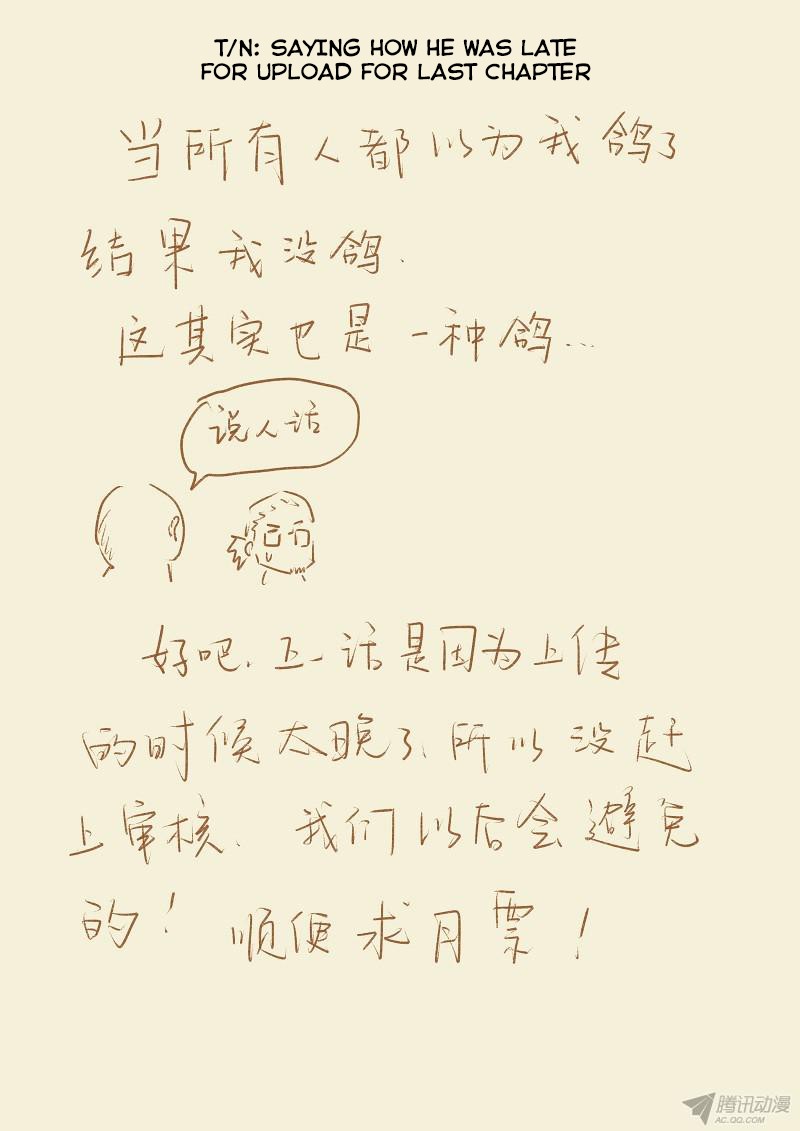 T/N: SAYING HOW HE WAS LATE
FOR UPLOAD FOR LAST CHAPTER
当所有人都以为我鸽了
结果我没鸽.
这其实也是一种鸽...
说人话
好吧.五一话是因为上传
的时候太晚了、所以没赶
上审核. 我们以后会避免
的! 顺便求月票!
腾讯动漫
AC.QQ.COM